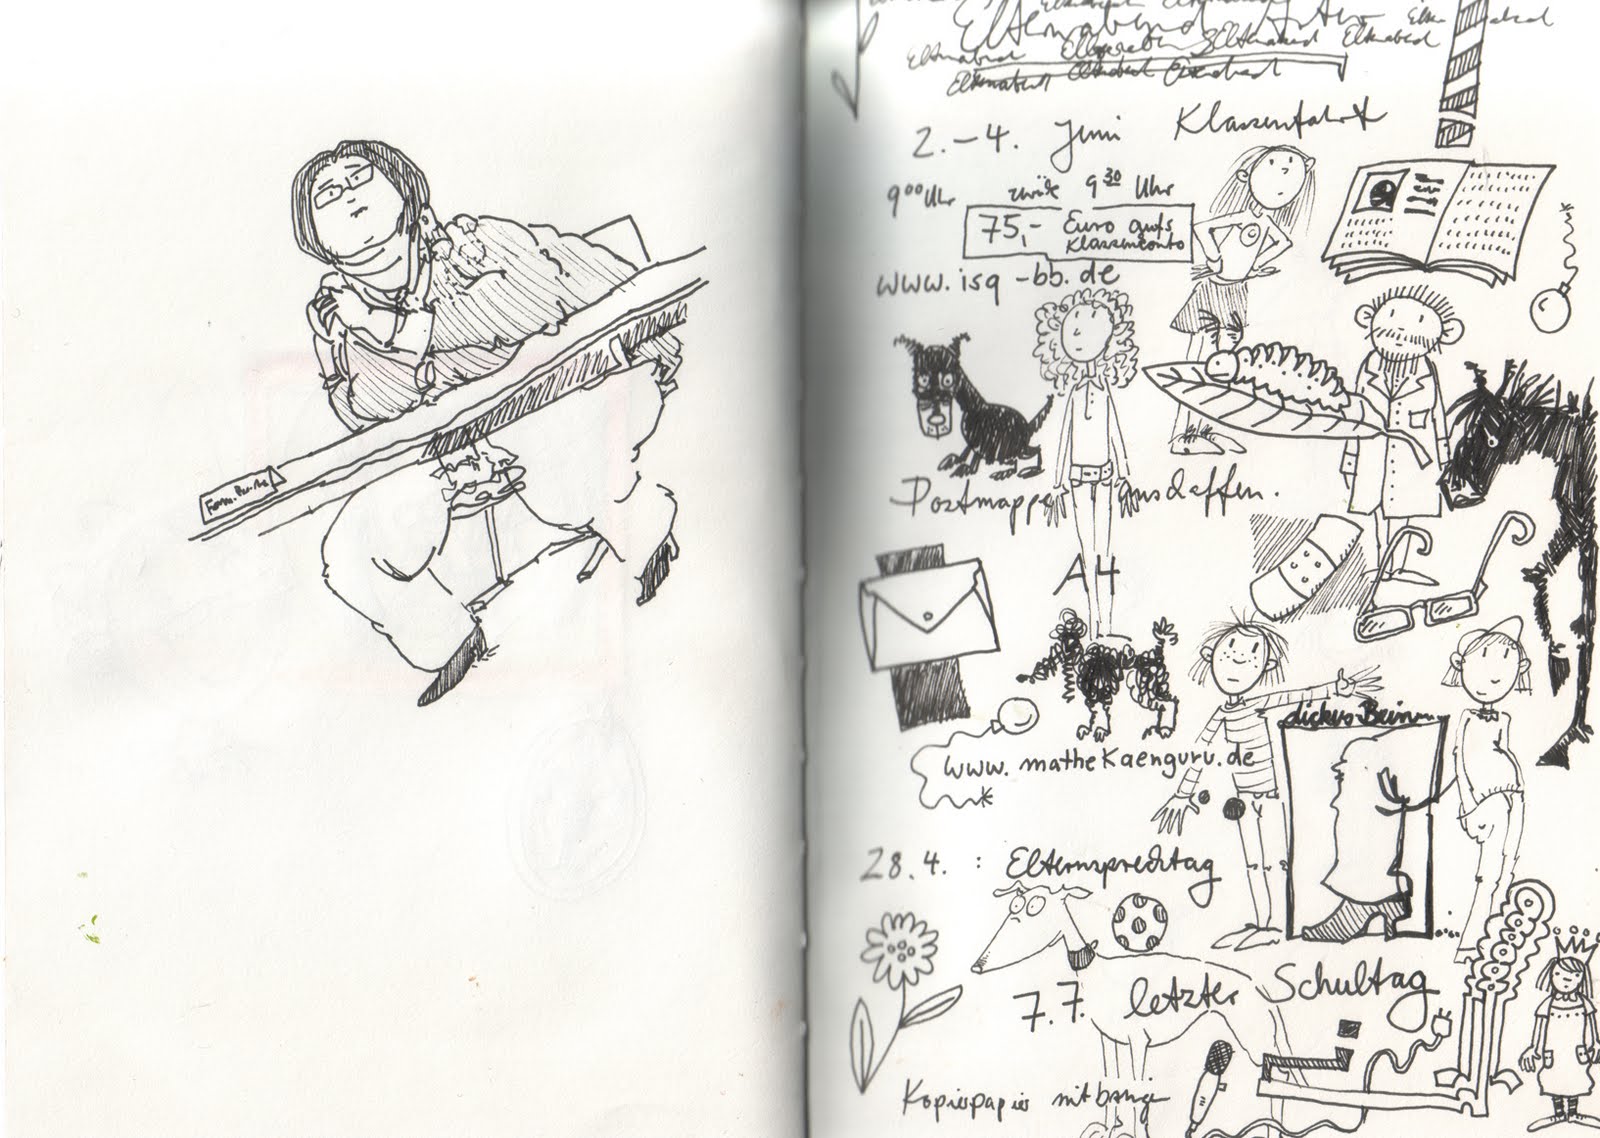 Elternabend
Elternabend Elternabend Elternabend
Elternabend Elternabend Elternabend
2.-4. Juni Klassenfahrt
9⁰⁰ Uhr zurück 9³⁰ Uhr
75,- Euro aufs
Klassenconto
www.isq-bb.de
Postmappe anschaffen.
A4
dickes Bein
www.mathekaenguru.de
28.4. : Elternsprechtag
7.7. letzter Schultag
Kopierpapier mitbringen